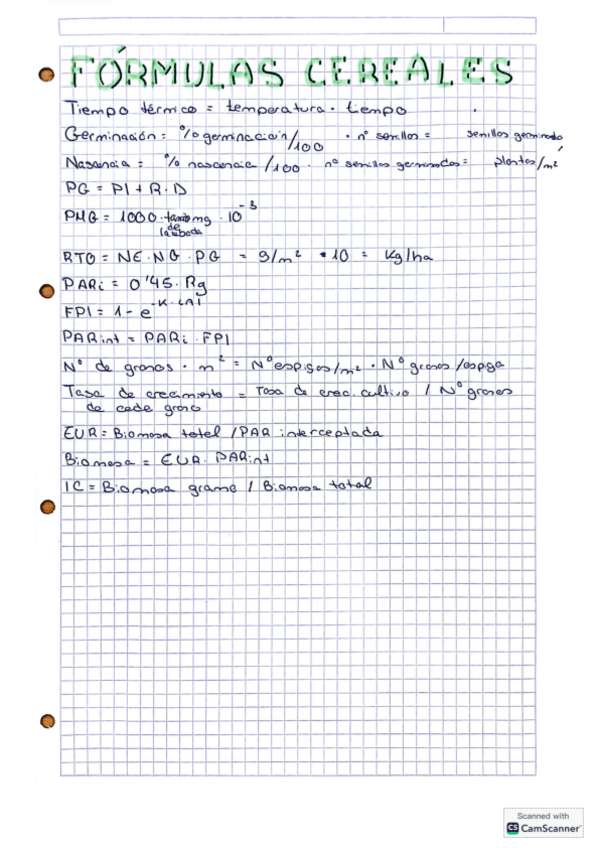 FÓRMULAS CEREALES
Tiempo térmico = temperatura · tiempo
Germinación = % germinación/100 · nº semillas = semillas germinado
Nascencia = % nascencia /100 · nº semillas germinados = plantas/m²
PG = PI + R · D
PMG = 1000 · mg · 10⁻³
de
RTO = NE · NG · PG = g/m² · 10 = Kg/ha
PARi = 0'45 · Rg
FPI = 1 - e^-K·LAI
PARint = PARi · FPI
Nº de granos · m² = Nº espigas/m² · Nº granos /espiga
Tasa de crecimiento = Tasa de crec. cultivo / Nº granos
de cada grano
EUR = Biomasa total /PAR interceptada
Biomasa = EUR · PARint
IC = Biomasa grano / Biomasa total
Scanned with
CS CamScanner